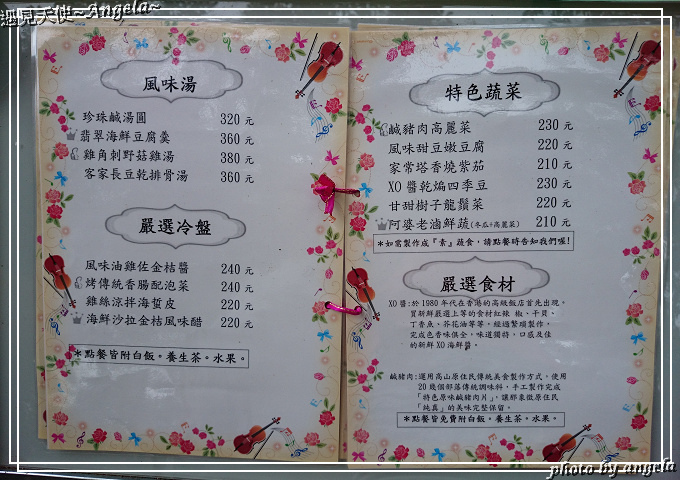 遇見天使~Angela~
風味湯
珍珠鹹湯圓 320 元
翡翠海鮮豆腐羹 360 元
雞角刺野菇雞湯 380 元
客家長豆乾排骨湯 360 元
嚴選冷盤
風味油雞佐金桔醬 240 元
烤傳統香腸配泡菜 240 元
雞絲涼拌海蜇皮 220 元
海鮮沙拉金桔風味醋 220 元
*點餐皆附白飯。養生茶。水果。
特色蔬菜
鹹豬肉高麗菜 230 元
風味甜豆嫩豆腐 220 元
家常塔香燒紫茄 210 元
XO 醬乾煸四季豆 230 元
甘甜樹子龍鬚菜 220 元
阿婆老滷鮮蔬(冬瓜+高麗菜) 210 元
*如需製作成『素』蔬食，請點餐時告知我們喔!
嚴選食材
XO 醬:於 1980 年代在香港的高級飯店首先出現。
買新鮮嚴選上等的食材紅辣 椒、干貝、
丁香魚、芥花油等等，經過繁瑣製作，
完成色香味俱全，味道獨特，口感及佳
的新鮮 XO 海鮮醬。
鹹豬肉:運用高山原住民傳統美食製作方式。使用
20 幾個部落傳統調味料，手工製作完成
「特色原味鹹豬肉片」，讓那象徵原住民
「純真」的美味完整保留。
*點餐皆免費附白飯。養生茶。水果。
photo by angela